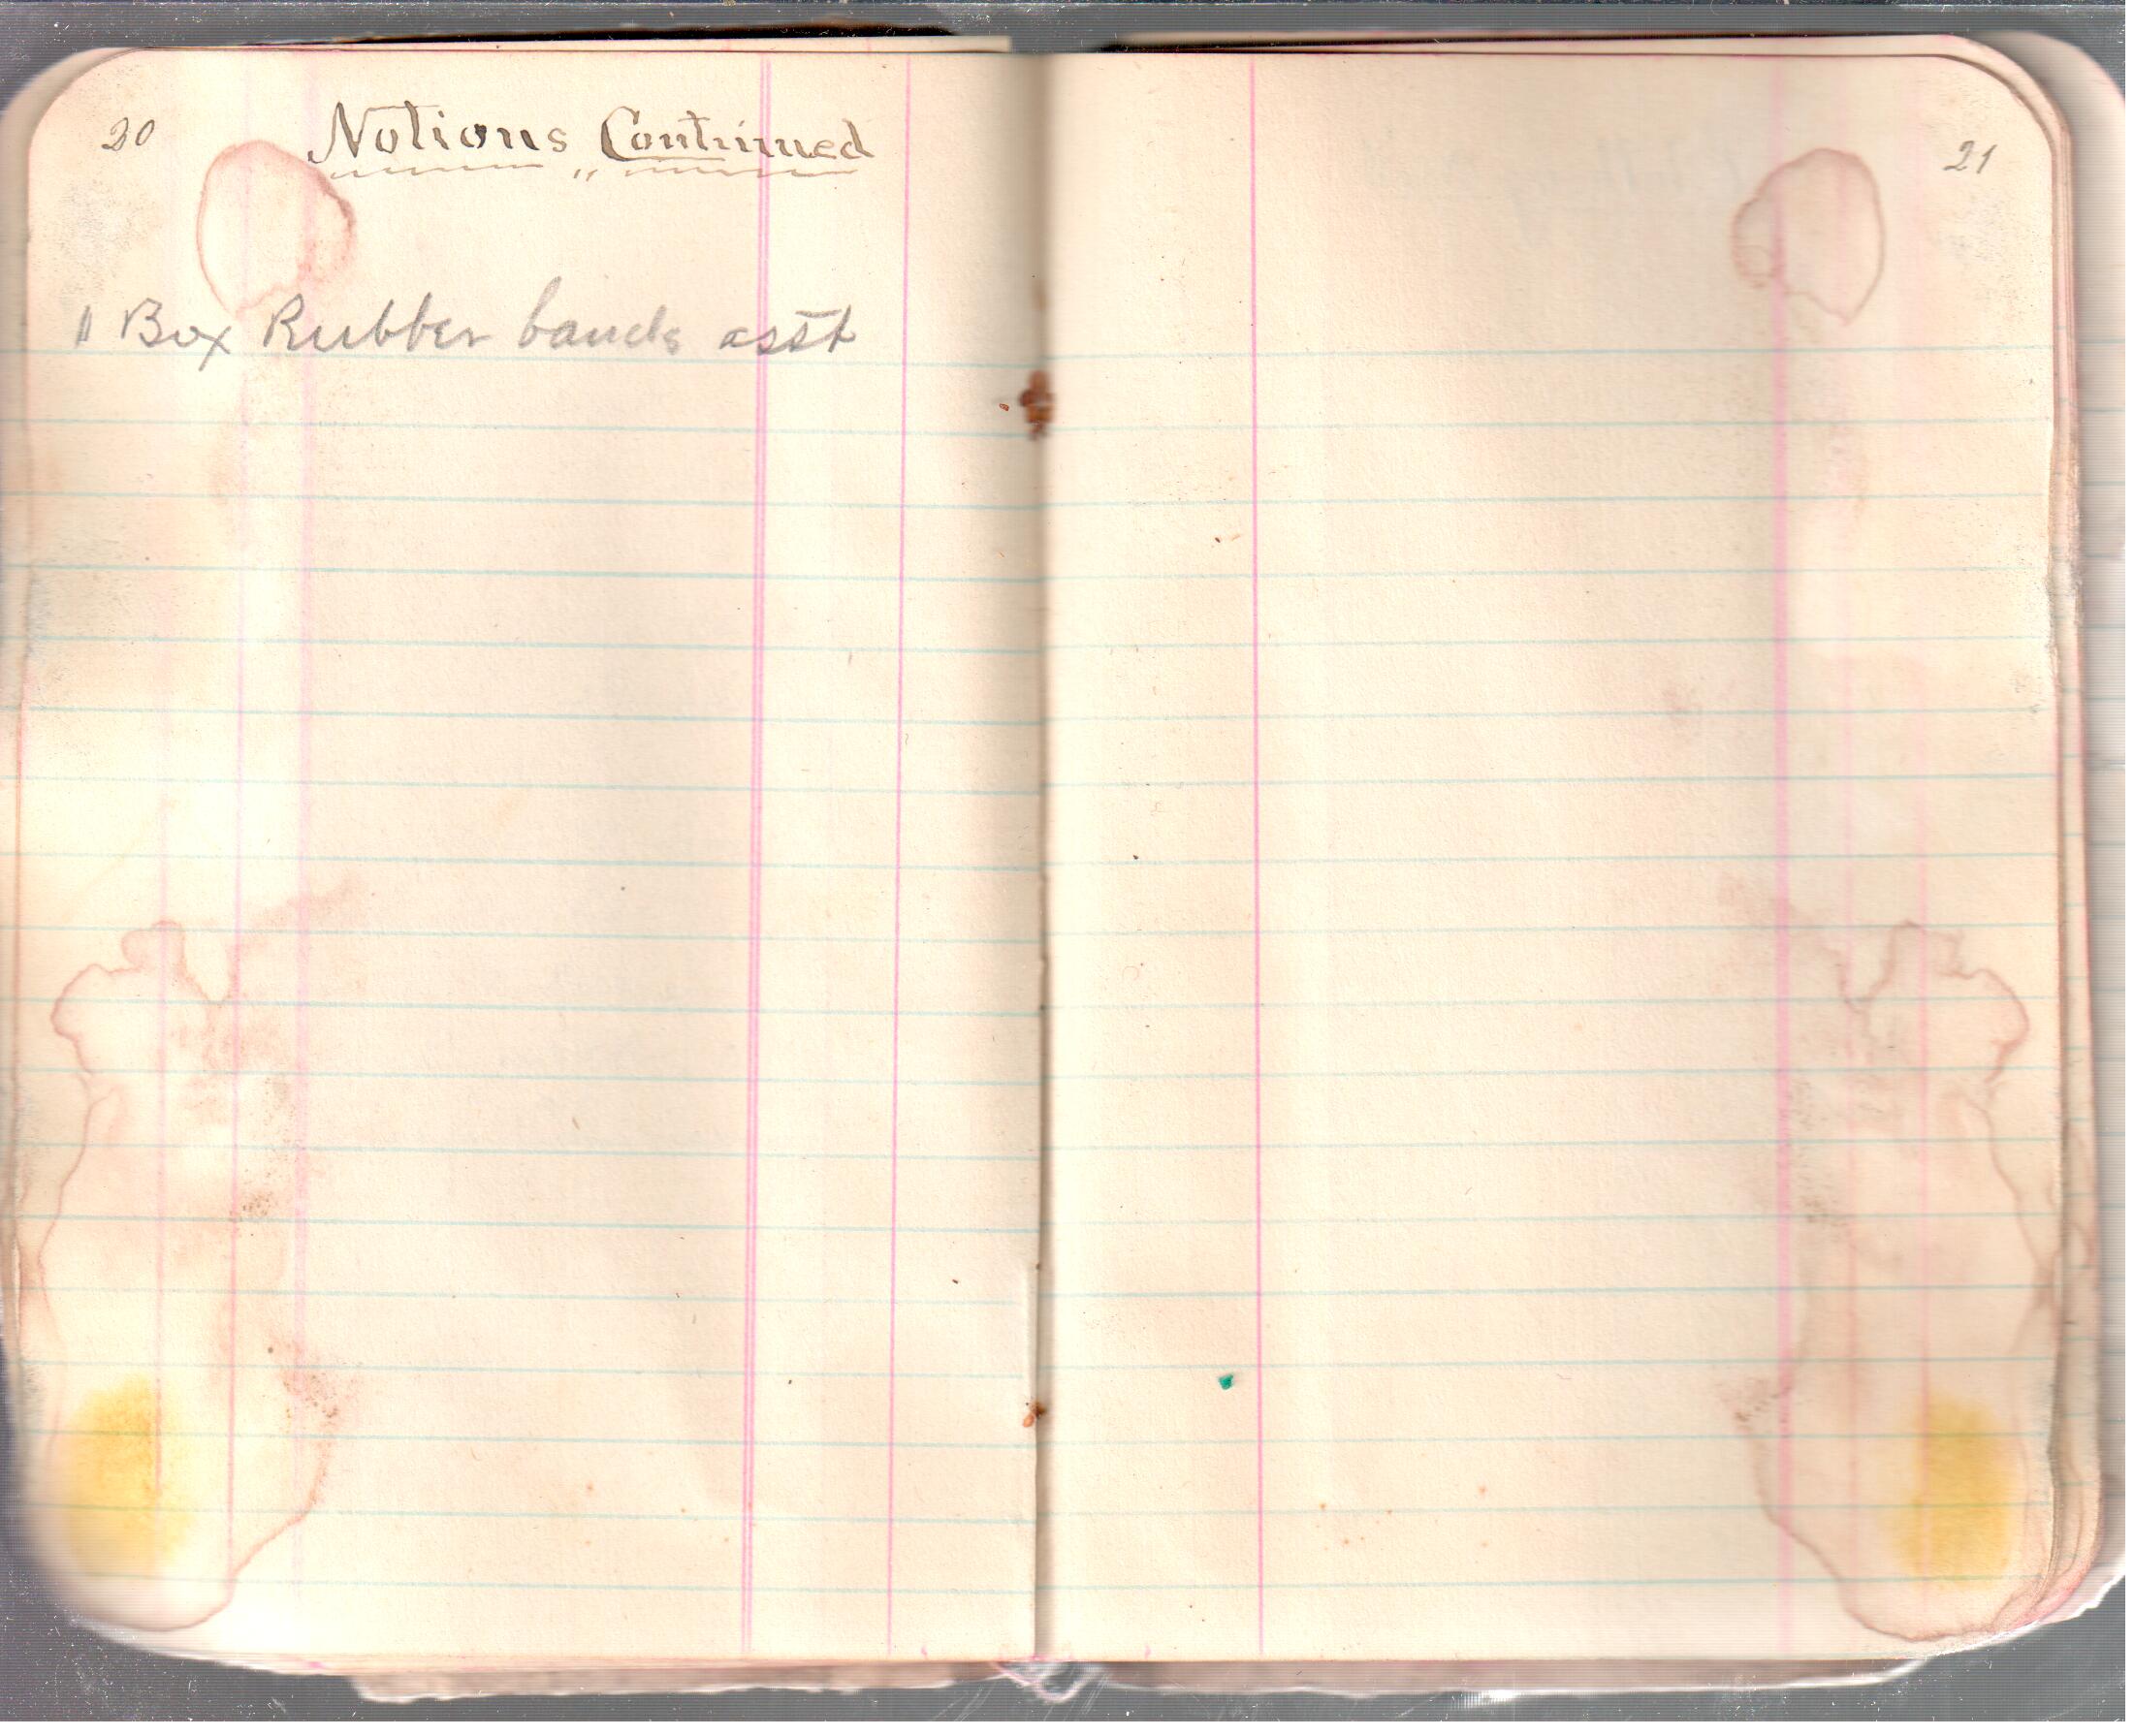 20
Notions Continued
1 Box Rubber bands asst
21